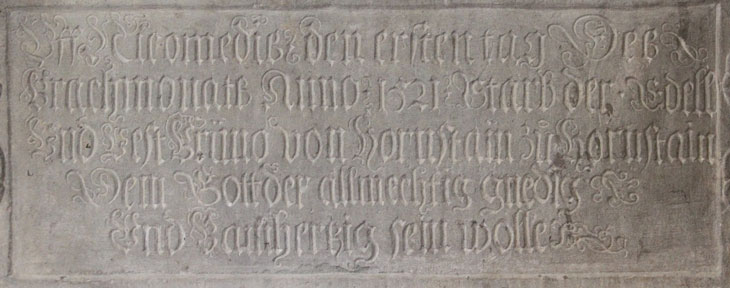 Vff Nicomedis den ersten tag Des
Brachmonats Anno 1521 Starb der Edell
Vnd Vest Brüno von Hornstain zů Hornstain
Dem Gott der allmechtig gnedig
Vnd Barmhertzig sein wolle